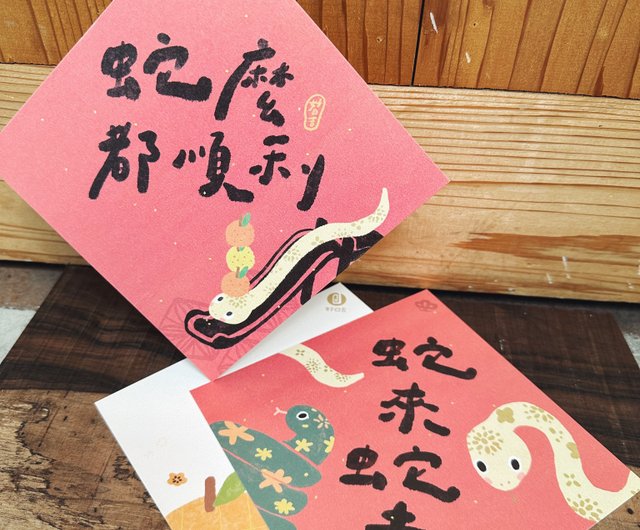 蛇麼
都順利
蛇來
蛇去